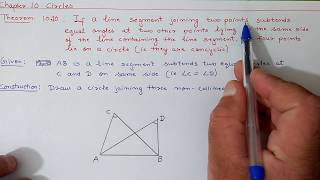 Chapter 10 Circles
Theorem 10.10 : If a line segment joining two points subtends
equal angles at two other points lying on the same side
of the line containing the line segment, four points
lie on a circle (ie they are concyclic)
Given: AB is a line segment subtends two equal angles at
C and D on same side (ie ∠C = ∠D)
Construction: Draw a circle joining three non-collinear
C
D
A
B